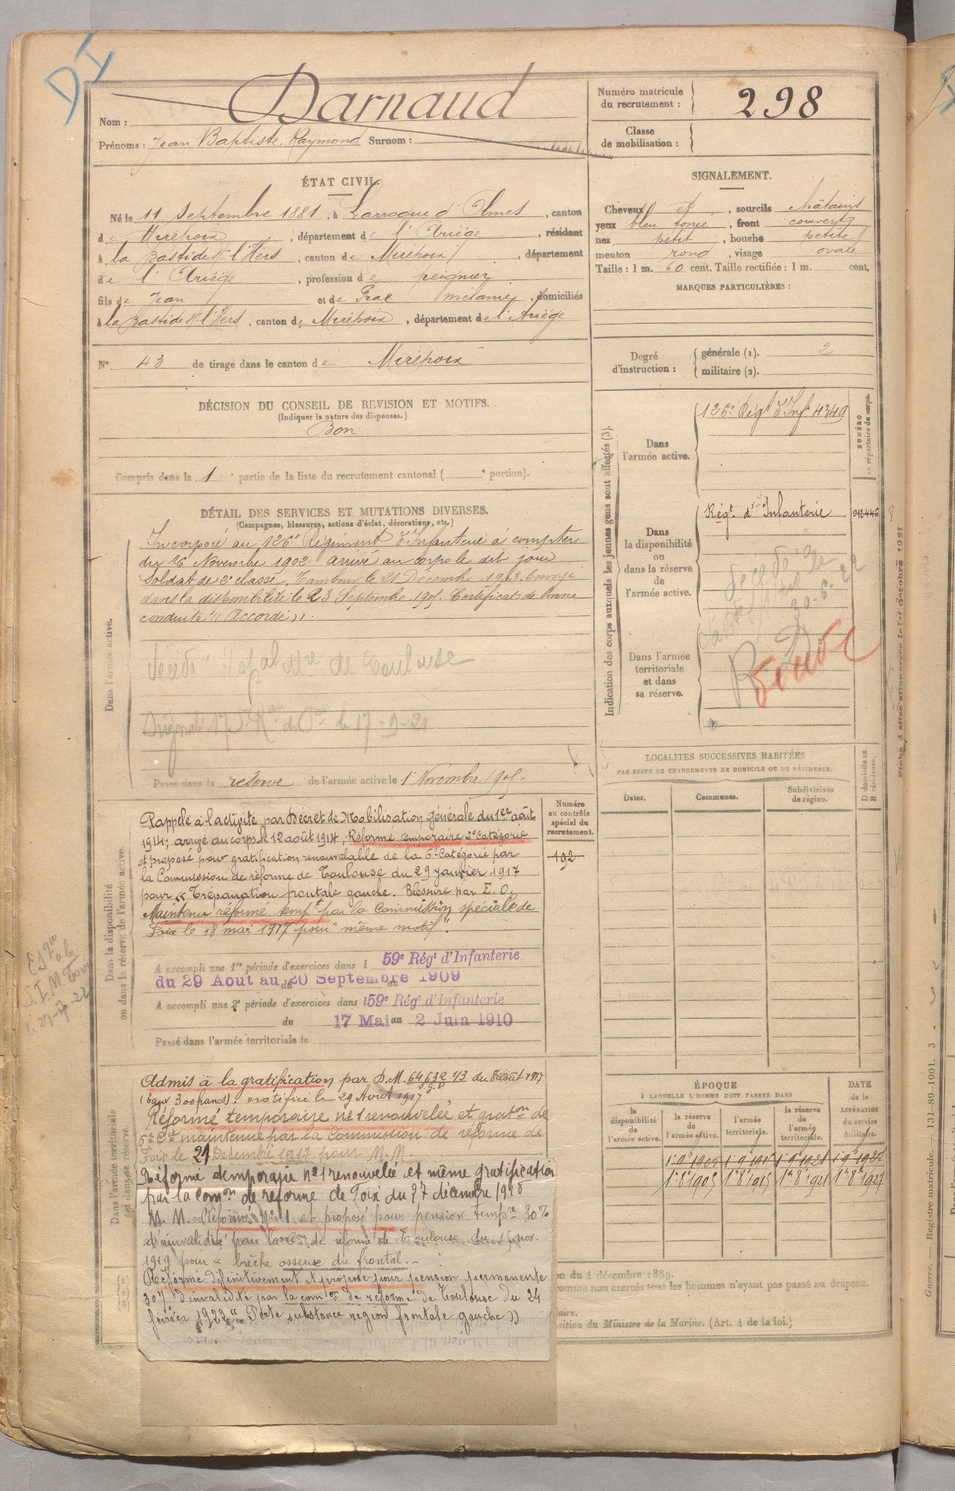 DI
Nom : Darnaud
Prénoms : Jean Baptiste Raymond Surnom :
Numéro matricule du recrutement : 298
Classe de mobilisation :
ÉTAT CIVIL
Né le 11 Septembre 1881, à Larroque d'Olmes, canton
de Mirepoix, département de l'Ariège, résidant
à la Bastide s/ l'Hers, canton de Mirepoix, département
de l'Ariège, profession de peigneur
fils de Jean et de Prax mélanie, domiciliés
à la Bastide s/ l'Hers, canton de Mirepoix, département de l'Ariège
N° 43 de tirage dans le canton de Mirepoix
SIGNALEMENT.
Cheveux et sourcils châtains
yeux bleu foncé, front couvert
nez petit, bouche petite
menton rond, visage ovale
Taille : 1 m. 60 cent. Taille rectifiée : 1 m. cent.
MARQUES PARTICULIÈRES :
Degré d'instruction : générale (1). 2
militaire (2).
DÉCISION DU CONSEIL DE REVISION ET MOTIFS.
(Indiquer la nature des dispenses.)
Bon
Compris dans la 1e partie de la liste du recrutement cantonal ( e portion).
DÉTAIL DES SERVICES ET MUTATIONS DIVERSES.
(Campagnes, blessures, actions d'éclat, décorations, etc.)
Dans l'armée active.
Incorporé au 126e Régiment d'Infanterie à compter
du 16 Novembre 1902. arrivé au corps le dit jour
Soldat de 2e classe. Tambour le 21 Décembre 1903. Envoyé
dans la disponibilité le 23 Septembre 1905. Certificat de Bonne
conduite "Accordé".
de Toulouse
17-9-21
Passé dans la réserve de l'armée active le 1 Novembre 1905.
Indication des corps auxquels les jeunes gens sont affectés (3).
Dans l'armée active.
126e Régt d'Inf. 4349
NUMÉRO au répertoire du corps.
Dans la disponibilité ou dans la réserve de l'armée active.
Régt d'Infanterie
Dans l'armée territoriale et dans sa réserve.
LOCALITÉS SUCCESSIVES HABITÉES
PAR SUITE DE CHANGEMENTS DE DOMICILE OU DE RÉSIDENCE.
Dates.
Communes.
Subdivisions de région.
D domicile ou R résidence.
Dans la disponibilité ou dans la réserve de l'armée active.
Rappelé à l'activité par Décret de Mobilisation générale du 1er août
1914; arrivé au corps le 12 août 1914, Réformé temporaire 2e Catégorie
et proposé pour gratification renouvelable de la 6e Catégorie par
la Commission de réforme de Toulouse du 29 janvier 1917
pour "Trépanation frontale gauche. Blessure par E.O.
Maintenu réformé tempre par la Commission spéciale de
Foix le 18 mai 1917 pour même motif".
Numéro au contrôle spécial du recrutement.
192
A accompli une 1re période d'exercices dans l 59e Régt d'Infanterie
du 29 Aout au 20 Septembre 1909
A accompli une 2e période d'exercices dans l 59e Régt d'Infanterie
du 17 Mai au 2 Juin 1910
Passé dans l'armée territoriale le
Dans l'armée territoriale et dans sa réserve.
Admis à la gratification par D.M. du 8 août 1917
notifié le 29 Août 1917.
Réformé temporaire n°1 renouvelée et graton de
6e Cie maintenue par la commission de réforme de
Foix le 21 Décembre 1917 pour M.M.
Réforme temporaire n°1 renouvelée et même gratification
par la Comon de réforme de Foix du 27 décembre 1918
M.M. Réformé N°1 et proposé pour pension tempre 30%
d'invalidité par la de réforme de Toulouse du nov.
1919 pour "brèche osseuse du frontal.
Réformé définitivement et proposé pour pension permanente
30% d'invalidité par la comon de réforme de Toulouse du 24
février 1922 "Perte substance région frontale gauche"
ÉPOQUE
À LAQUELLE L'HOMME DOIT PASSER DANS
la disponibilité de l'armée active.
la réserve de l'armée active.
l'armée territoriale.
la réserve de l'armée territoriale.
DATE de la LIBÉRATION du service militaire.
du 4 décembre 1889.
comme non exercés tous les hommes n'ayant pas passé au drapeau.
sition du Ministre de la Marine. (Art. 4 de la loi.)
Guerre. — Registre matricule. — 131-89-1901. 3